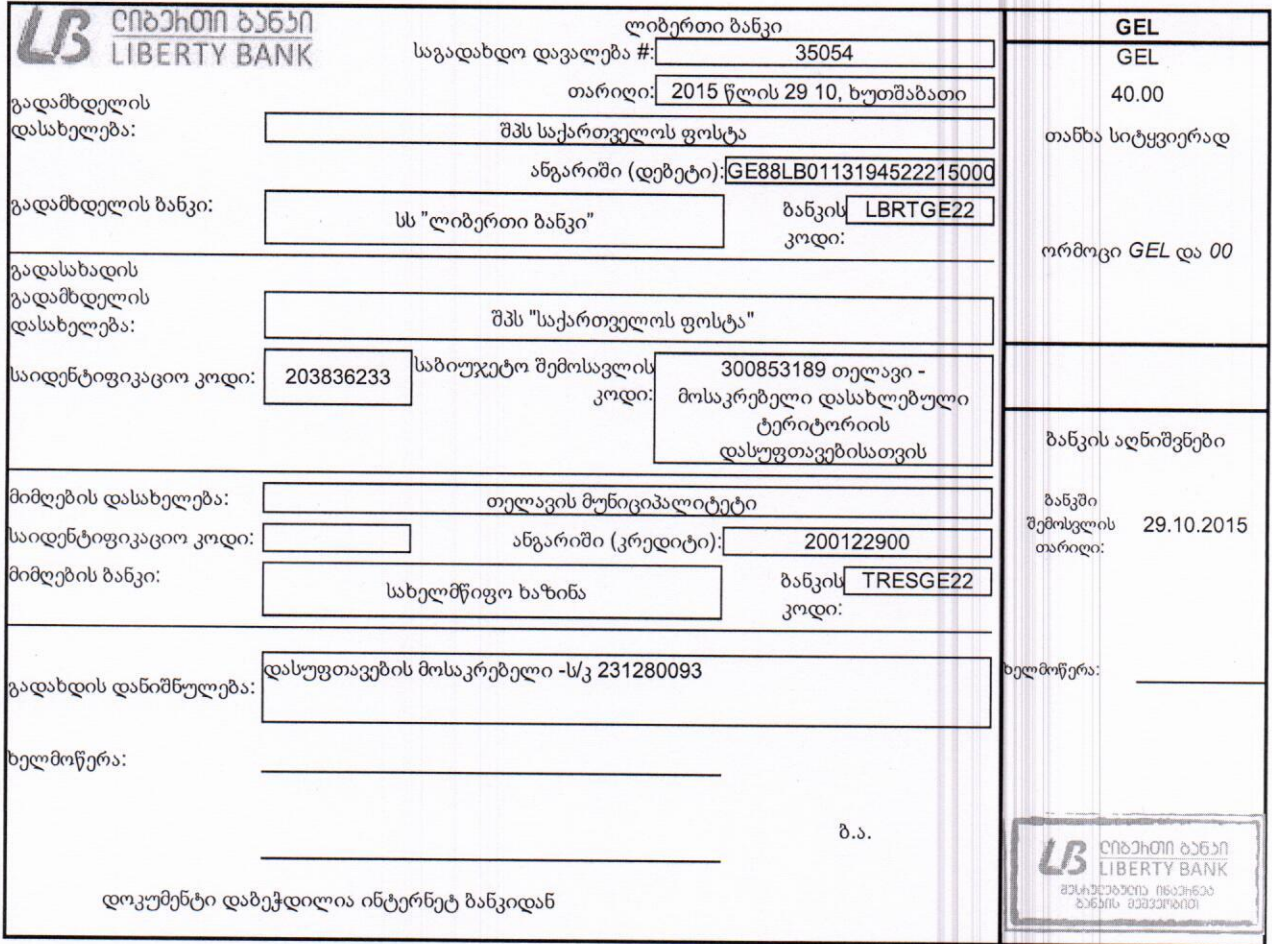 ლიბერთი ბანკი
LIBERTY BANK
ლიბერთი ბანკი
საგადახდო დავალება #: 35054
თარიღი: 2015 წლის 29 10, ხუთშაბათი
გადამხდელის
დასახელება: შპს საქართველოს ფოსტა
ანგარიში (დებეტი): GE88LB0113194522215000
გადამხდელის ბანკი: სს "ლიბერთი ბანკი" ბანკის LBRTGE22
კოდი:
გადასახადის
გადამხდელის
დასახელება: შპს "საქართველოს ფოსტა"
საიდენტიფიკაციო კოდი: 203836233 საბიუჯეტო შემოსავლის
კოდი:
300853189 თელავი -
მოსაკრებელი დასახლებული
ტერიტორიის
დასუფთავებისათვის
მიმღების დასახელება: თელავის მუნიციპალიტეტი
საიდენტიფიკაციო კოდი: ანგარიში (კრედიტი): 200122900
მიმღების ბანკი: სახელმწიფო ხაზინა ბანკის TRESGE22
კოდი:
გადახდის დანიშნულება: დასუფთავების მოსაკრებელი -ს/კ 231280093
ხელმოწერა:
ბ.ა.
დოკუმენტი დაბეჭდილია ინტერნეტ ბანკიდან
GEL
GEL
40.00
თანხა სიტყვიერად
ორმოცი GEL და 00
ბანკის აღნიშვნები
ბანკში
შემოსვლის 29.10.2015
თარიღი:
ხელმოწერა:
ლიბერთი ბანკი
LIBERTY BANK
შესრულებულია ინტერნეტ
ბანკის მეშვეობით